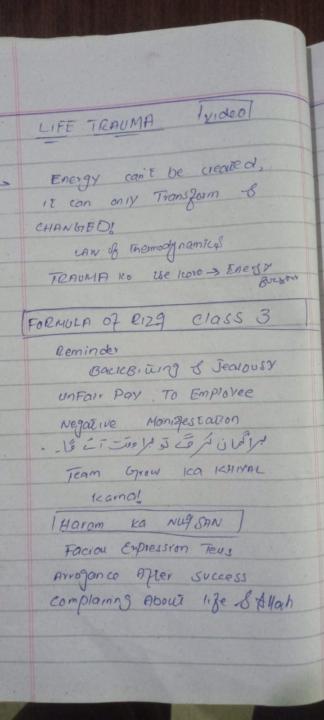 LIFE TRAUMA 1 video
Energy can't be created,
it can only Transform &
CHANGED!
LAW of Themodynamics
TRAUMA ko Use karo → Energy
FORMULA OF RIZQ Class 3
Reminder
BackBiting & Jealousy
UnFair Pay To Employee
Negative Manifestation
برا گمان کرو گے تو برا وقت آئے گا۔
Team Grow ka KHYAL
karna!
Haram ka NUQSAN
Facial Expression Tells
Arrogance After Success
Complaining About life & Allah